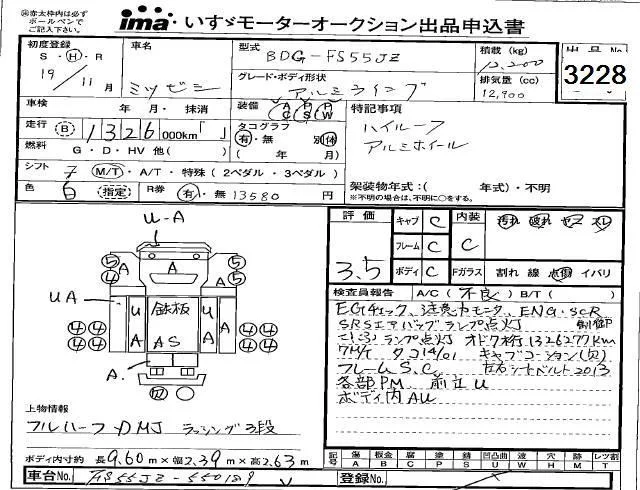 ㊟赤太枠内は必ず
ボールペンで
ご記入下さい。
ima いすゞモーターオークション出品申込書
初度登録
S・H・R
19年 11月
車名
ミツビシ
型式
BDG-FS55JZ
グレード・ボディ形状
アルミウイング
積載 (kg)
12,200
排気量 (cc)
12,900
出品No
3228
車検 年 月・ 抹消
装備 A P P C S W
走行 B 1326 000km「 」
タコグラフ
有・無 別 休
( 年 月)
燃料 G・D・HV 他( )
シフト 7 M/T・A/T・特殊(2ペダル・3ペダル)
色 白 (指定) R券 有・無 13580 円
特記事項
ハイルーフ
アルミホイール
架装物年式:( 年式)・不明
※不明の場合は、不明に○をする。
U-A
5 5 4 4
A A A
UA
U A 鉄板 AS U A
4 4 4 4
4 4 4 4
A.
評価
3.5
キャブ C
フレーム C
ボディ C
内装 C
汚れ 破れ ヤケ スレ
Fガラス 割れ 線 点傷 イバリ
検査員報告 A/C( 不良 ) B/T( )
EGチェック、注意力モニタ、ENG・SCR
SRSエアバッグランプ点灯 制御
ランプ点灯 オド7桁 1326277km
7M/T タコ14/01 キャブコーション(欠)
フレームS.C. 左右シートベルト2013
各部PM 前立U
ボディ内AU
上物情報
フルハーフ DMJ ラッシング3段
ボディ内寸約 長9.60m×幅2.39m×高2.63m
記号 傷 A 板金 B 腐 C 補 P 錆 S 凹凸曲 U 波 W 穴 H 跡 M レツ割 T
車台No. FS55JZ-550189
登録No.